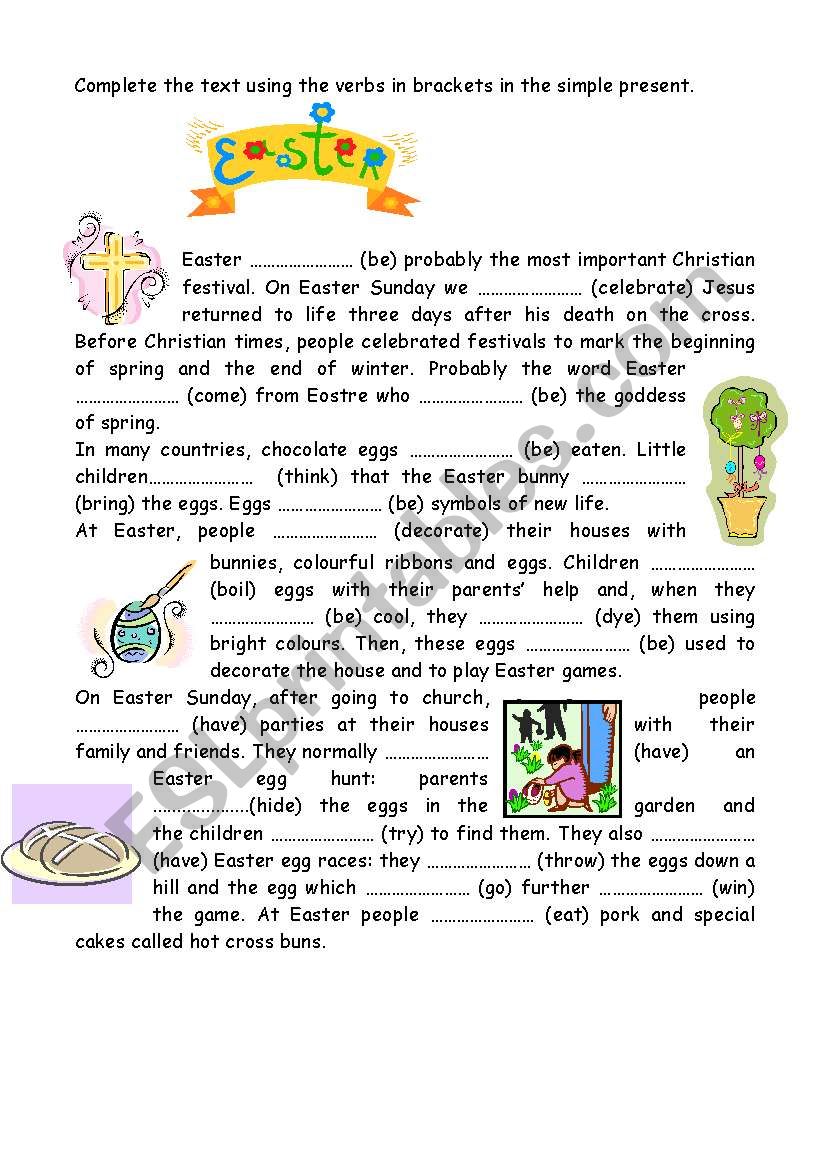 Complete the text using the verbs in brackets in the simple present.
Easter
Easter …………………… (be) probably the most important Christian
festival. On Easter Sunday we …………………… (celebrate) Jesus
returned to life three days after his death on the cross.
Before Christian times, people celebrated festivals to mark the beginning
of spring and the end of winter. Probably the word Easter
…………………… (come) from Eostre who …………………… (be) the goddess
of spring.
In many countries, chocolate eggs …………………… (be) eaten. Little
children…………………… (think) that the Easter bunny ……………………
(bring) the eggs. Eggs …………………… (be) symbols of new life.
At Easter, people …………………… (decorate) their houses with
bunnies, colourful ribbons and eggs. Children ……………………
(boil) eggs with their parents’ help and, when they
…………………… (be) cool, they …………………… (dye) them using
bright colours. Then, these eggs …………………… (be) used to
decorate the house and to play Easter games.
On Easter Sunday, after going to church, people
…………………… (have) parties at their houses with their
family and friends. They normally …………………… (have) an
Easter egg hunt: parents
......................(hide) the eggs in the garden and
the children …………………… (try) to find them. They also ……………………
(have) Easter egg races: they …………………… (throw) the eggs down a
hill and the egg which …………………… (go) further …………………… (win)
the game. At Easter people …………………… (eat) pork and special
cakes called hot cross buns.
ESLprintables.com